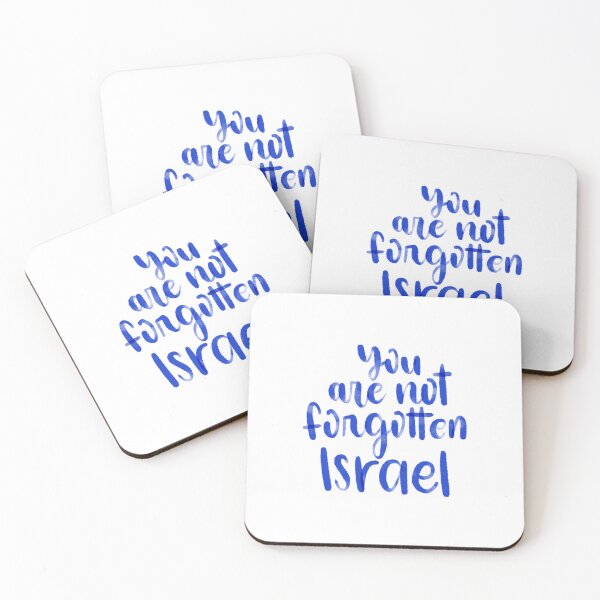 you
are not
forgotten
you
are not
forgotten
Israel
you
are not
forgotten
Israel
you
are not
forgotten
Israel